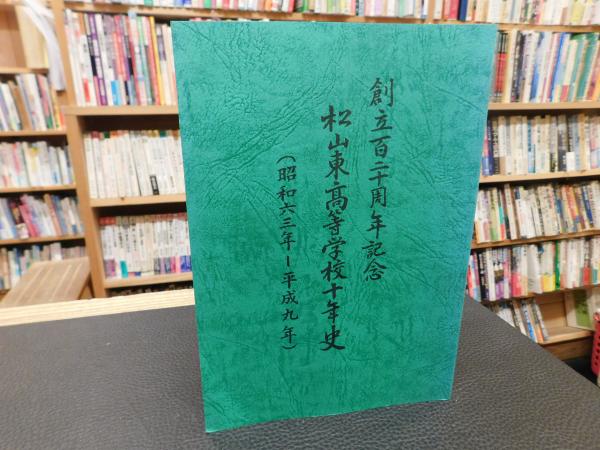 創立百二十周年記念
松山東高等学校十年史
(昭和六三年ー平成九年)